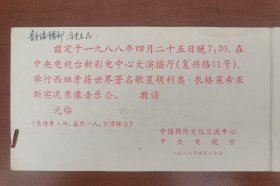 兹定于一九八八年四月二十五日晚7,30,在
中央电视台新彩电中心大演播厅(复兴路11号),
举行西班牙籍世界著名歌星胡利奥·衣格莱希亚
斯实况录像音乐会。 敬请
光临
(凭请柬入场,每柬一人,不得转让)
中国国际文化交流中心
中央电视台
一九八八年四月二十日